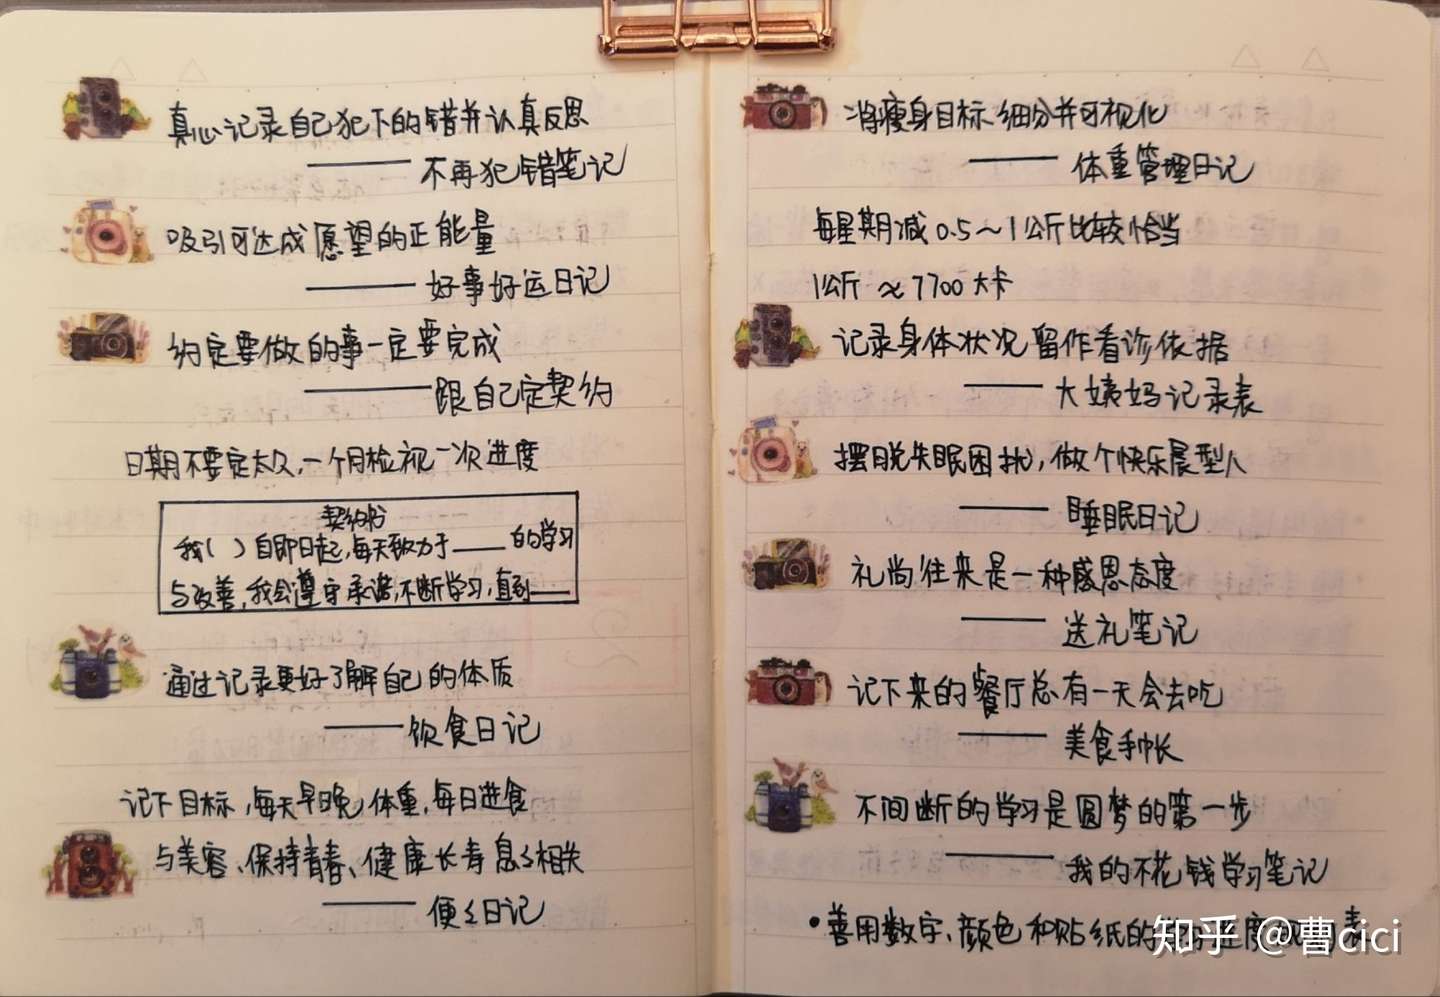 真心记录自己犯下的错并认真反思
——不再犯错笔记
吸引可达成愿望的正能量
——好事好运日记
约定要做的事一定要完成
——跟自己定契约
日期不要定太久,一个月检视一次进度
契约书
我( )自即日起,每天致力于____的学习
与改善,我会遵守承诺,不断学习,直到____
通过记录更好了解自己的体质
——饮食日记
记下目标,每天早晚体重,每日进食
与美容、保持青春、健康长寿息々相关
——便々日记
将瘦身目标细分并可视化
——体重管理日记
每星期减0.5~1公斤比较恰当
1公斤≈7700大卡
记录身体状况留作看诊依据
——大姨妈记录表
摆脱失眠困扰,做个快乐晨型人
——睡眠日记
礼尚往来是一种感恩态度
——送礼笔记
记下来的餐厅总有一天会去吃
——美食手帐
不间断的学习是圆梦的第一步
——我的不花钱学习笔记
•善用数字、颜色和贴纸的
知乎 @曹cici